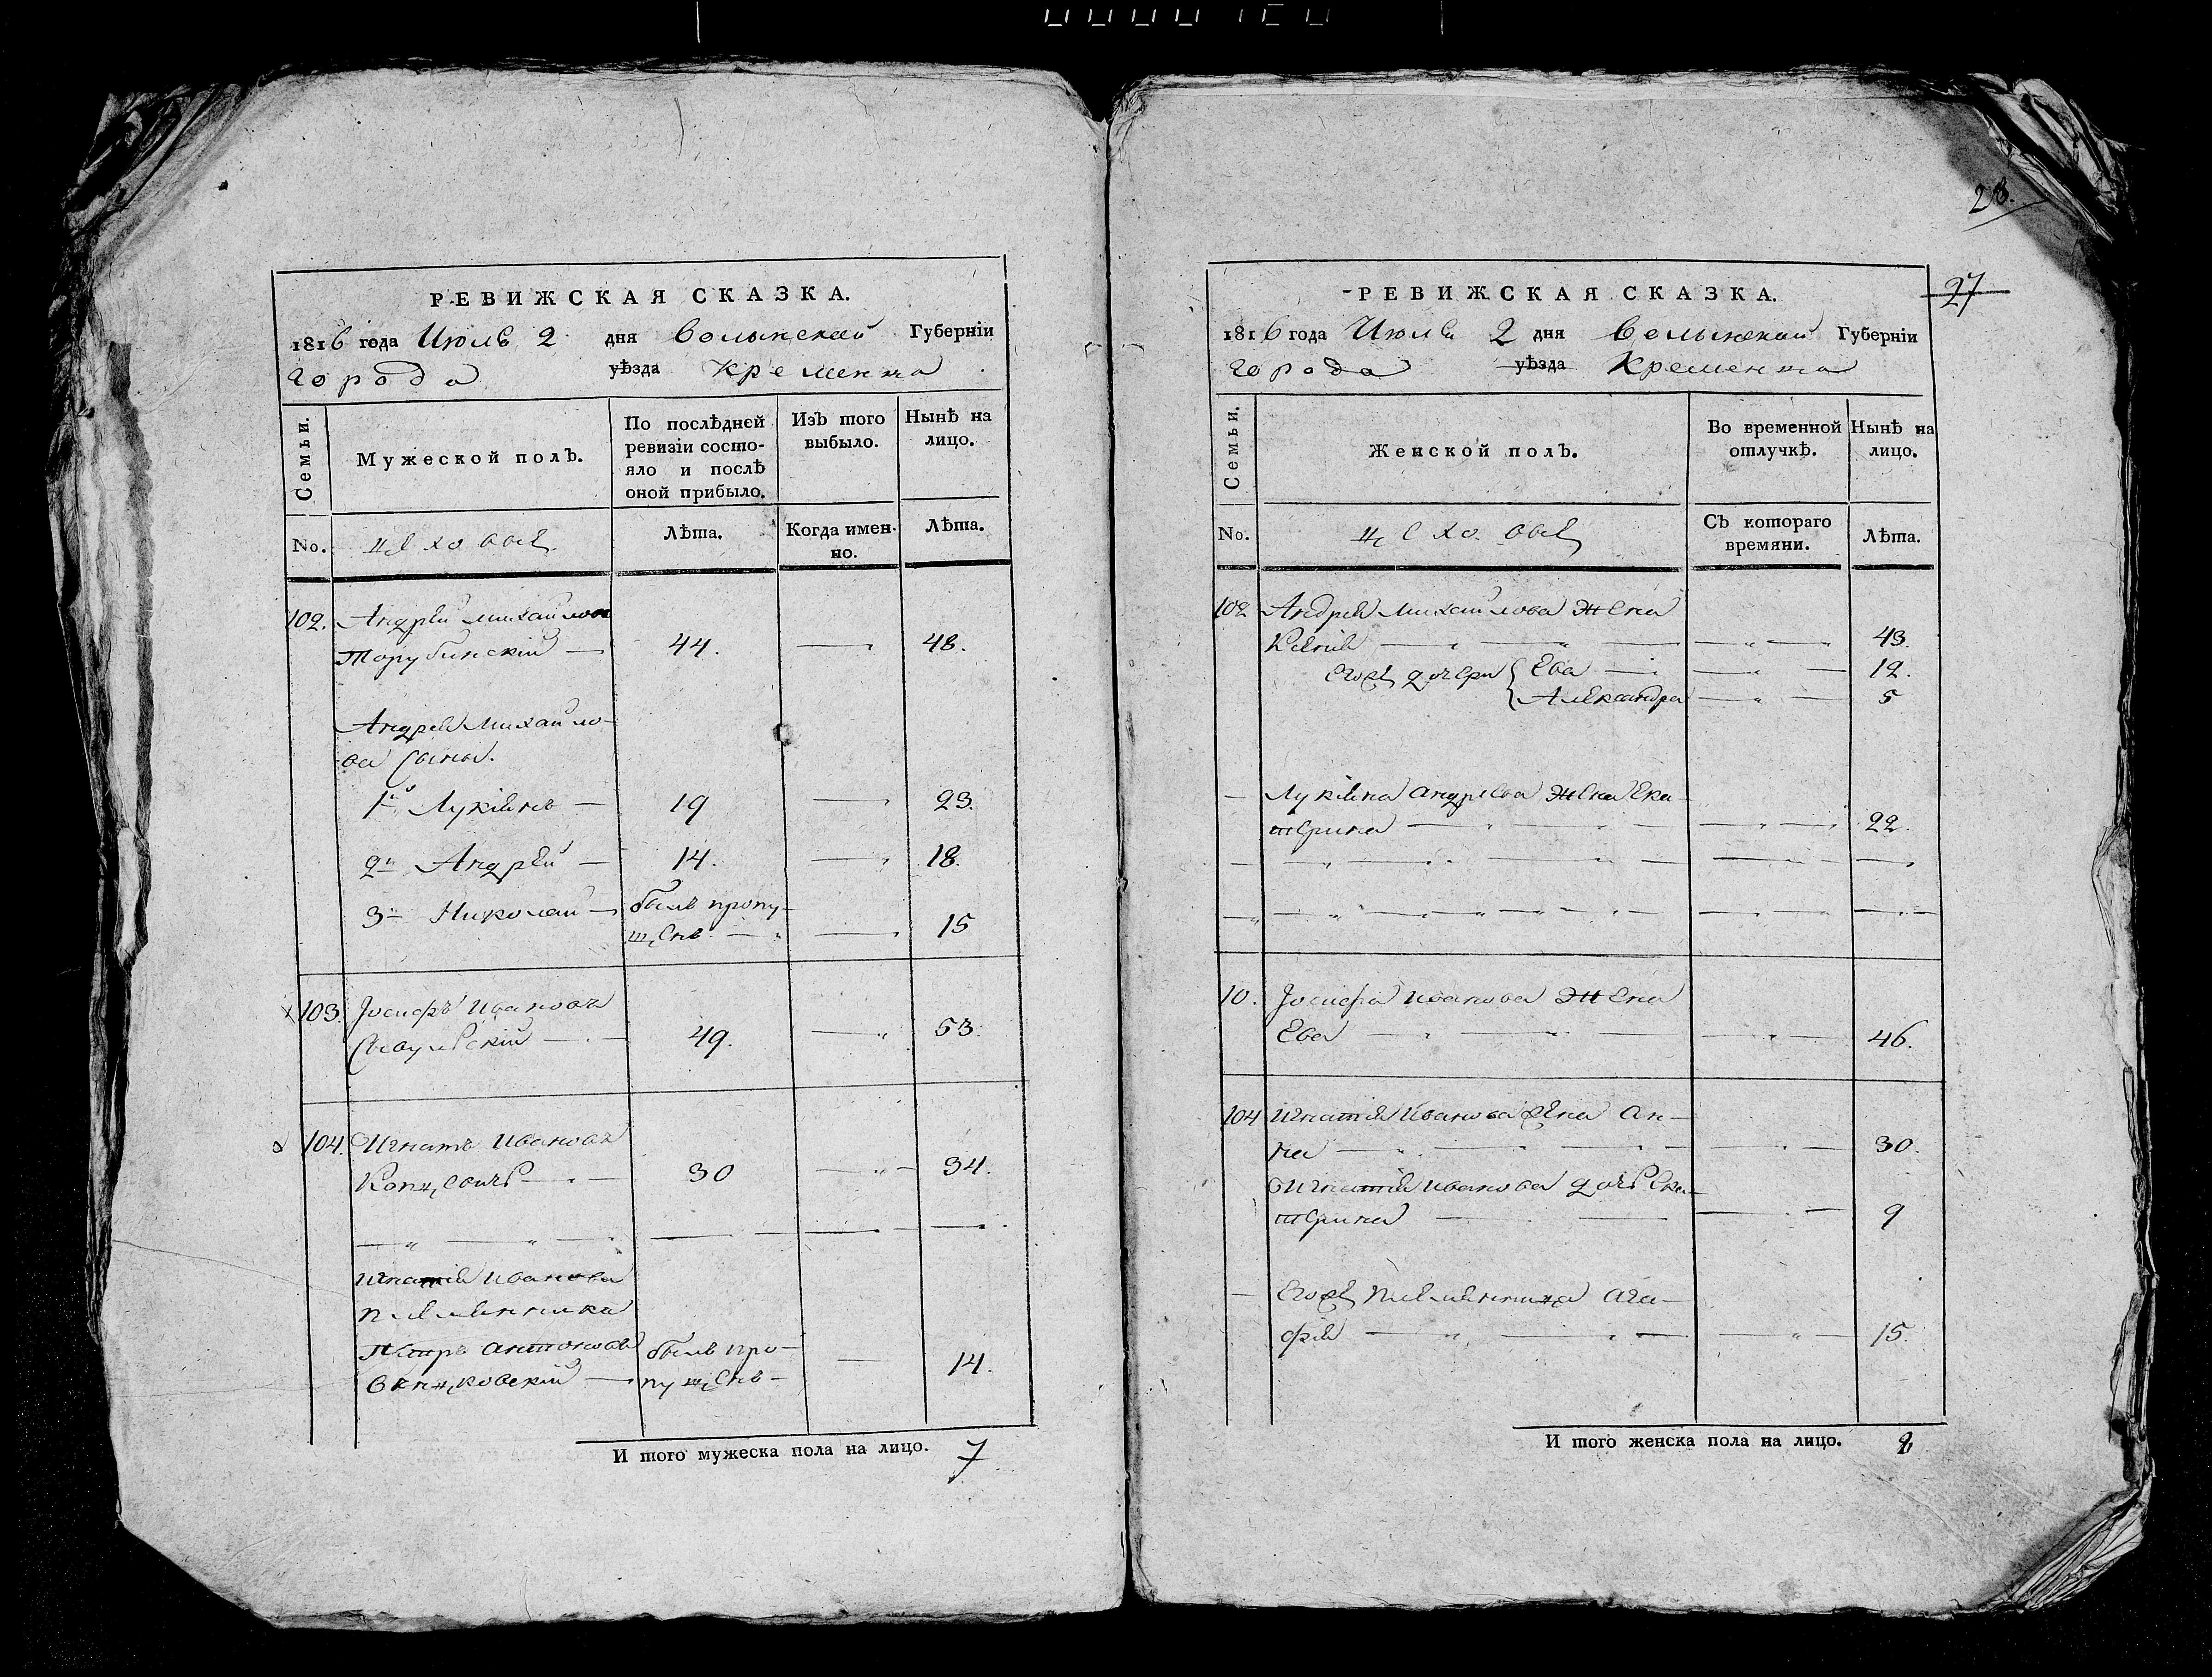 РЕВИЖСКАЯ СКАЗКА.
1816 года Июля 2 дня Волынской Губерніи
города уѣзда Кременца
Семьи.
Мужеской полъ.
По послѣдней
ревизіи состо-
яло и послѣ
оной прибыло.
Изъ того
выбыло.
Нынѣ на
лицо.
No.
цеховые
Лѣта.
Когда имен-
но.
Лѣта.
102. Андрей Михайловъ
Торубинскій — 44. — 48.
Андрея Михайло-
ва Сыны.
1й Лукіянъ — 19 — 23.
2й Андрей — 14. — 18.
3й Николай — былъ пропу-
щенъ — — 15
103. Іосифъ Ивановъ
49. — 53.
104. Игнатъ Ивановъ
30 — 34.
Игнатія Иванова
племянника
Петръ Антоновъ былъ про-
пущенъ — — 14.
И того мужеска пола на лицо. 7
28.
27
РЕВИЖСКАЯ СКАЗКА.
1816 года Июля 2 дня Волынской Губерніи
города уѣзда Кременца
Семьи.
Женской полъ.
Во временной
отлучкѣ.
Нынѣ на
лицо.
No.
цеховые
Съ котораго
времяни.
Лѣта.
102 Андрея Михайлова жена
— — 43.
его же дочери { Ева — — 12.
Александра — 5
— Лукіяна Андреева жена Ека-
терина — — 22.
10. Іосифа Иванова жена
Ева — — 46.
104 Игнатія Иванова жена Ан-
на — — 30.
Игнатія Иванова дочь Ека-
терина — — 9
— Его же племянница Ага-
фія — — 15.
И того женска пола на лицо.